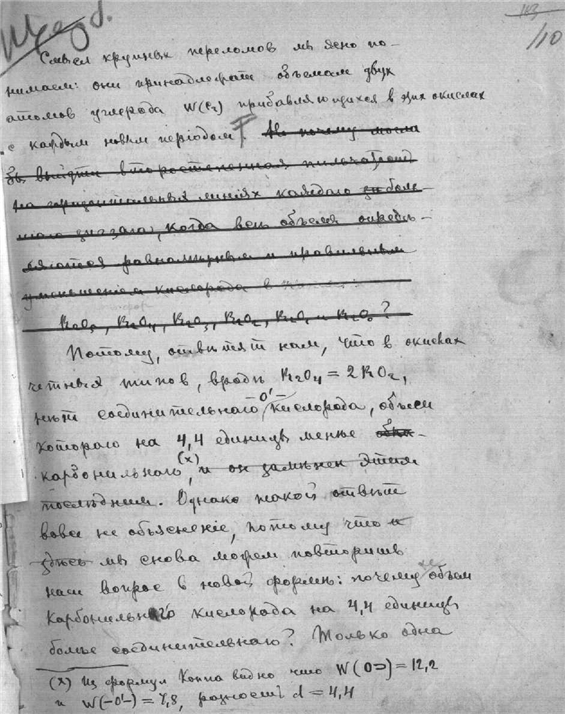 103
110
Смысл крупных переломов мы ясно по-
нимаем: они принадлежат объемам двух
атомов углерода W(C₂) прибавляющихся в этих окислах
с каждым новым періодом
Но почему могла
бы выйти второстепенная
на горизонтальных линіях каждаго боль-
шого зигзага, когда весь объемъ опредѣ-
ляется равномѣрным и правильным
уменьшеніем кислорода в
R₂O₄, R₂O₃, R₂O₂, R₂O₁ и R₂O₀?
Потому, отвѣтят нам, что в окисях
четных типов, вродѣ R₂O₄ = 2RO₂,
нѣт соединительнаго -O'- кислорода, объем
котораго на 4,4 единицы менѣе
карбонильнаго (x), и он замѣнен этим
послѣдним. Однако такой отвѣт
вовсе не объясненіе, потому что и
здѣсь мы снова можем повторить
наш вопрос в новой формѣ: почему же объем
карбонильнаго кислорода на 4,4 единицы
болѣе соединительнаго? Только одна
(x) Из формул Коппа видно что W(O=) = 12,2
и W(-O'-) = 7,8, разность d = 4,4